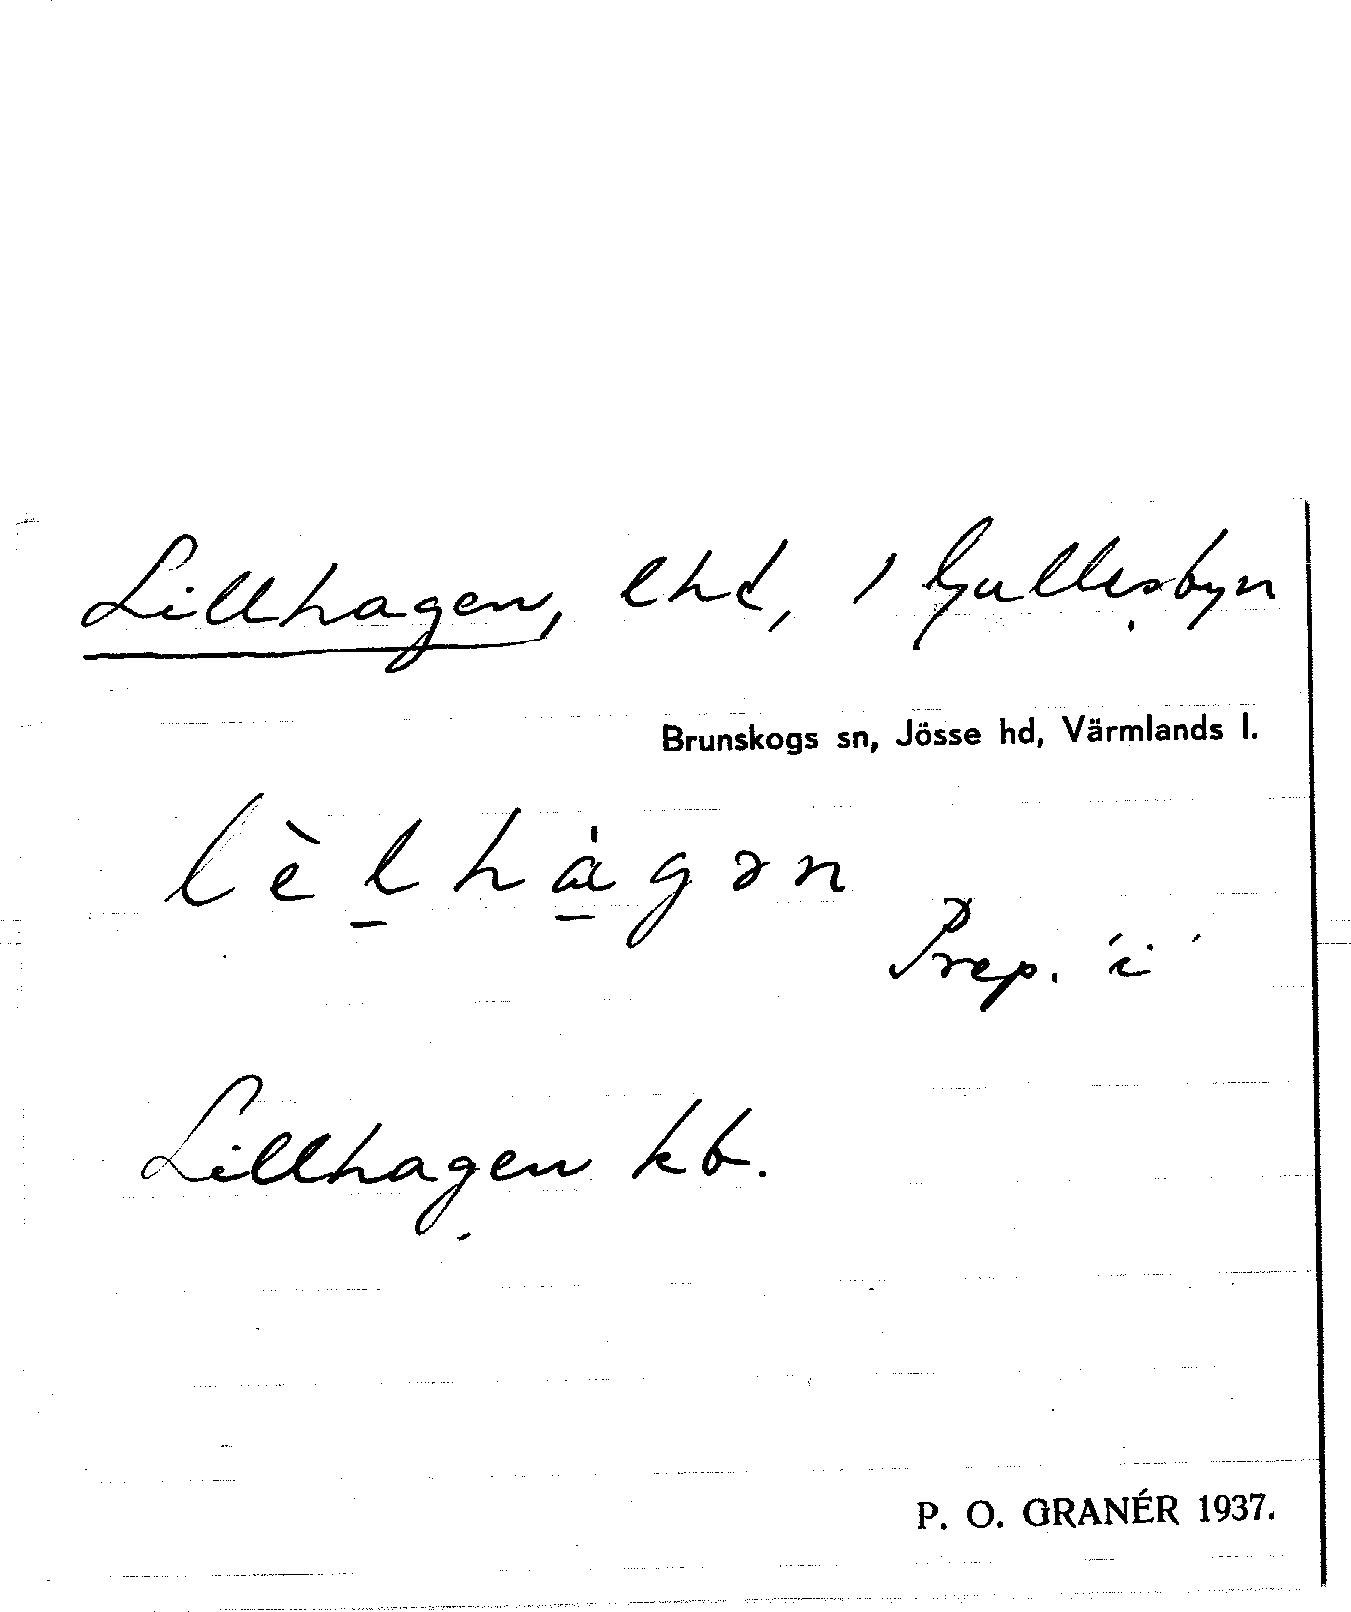 Lillhagen, lhd, 1 Gullesbyn
Brunskogs sn, Jösse hd, Värmlands l.
lèl̲hȧ̲gən
Prep. 'i'
Lillhagen kb.
P. O. GRANÉR 1937.